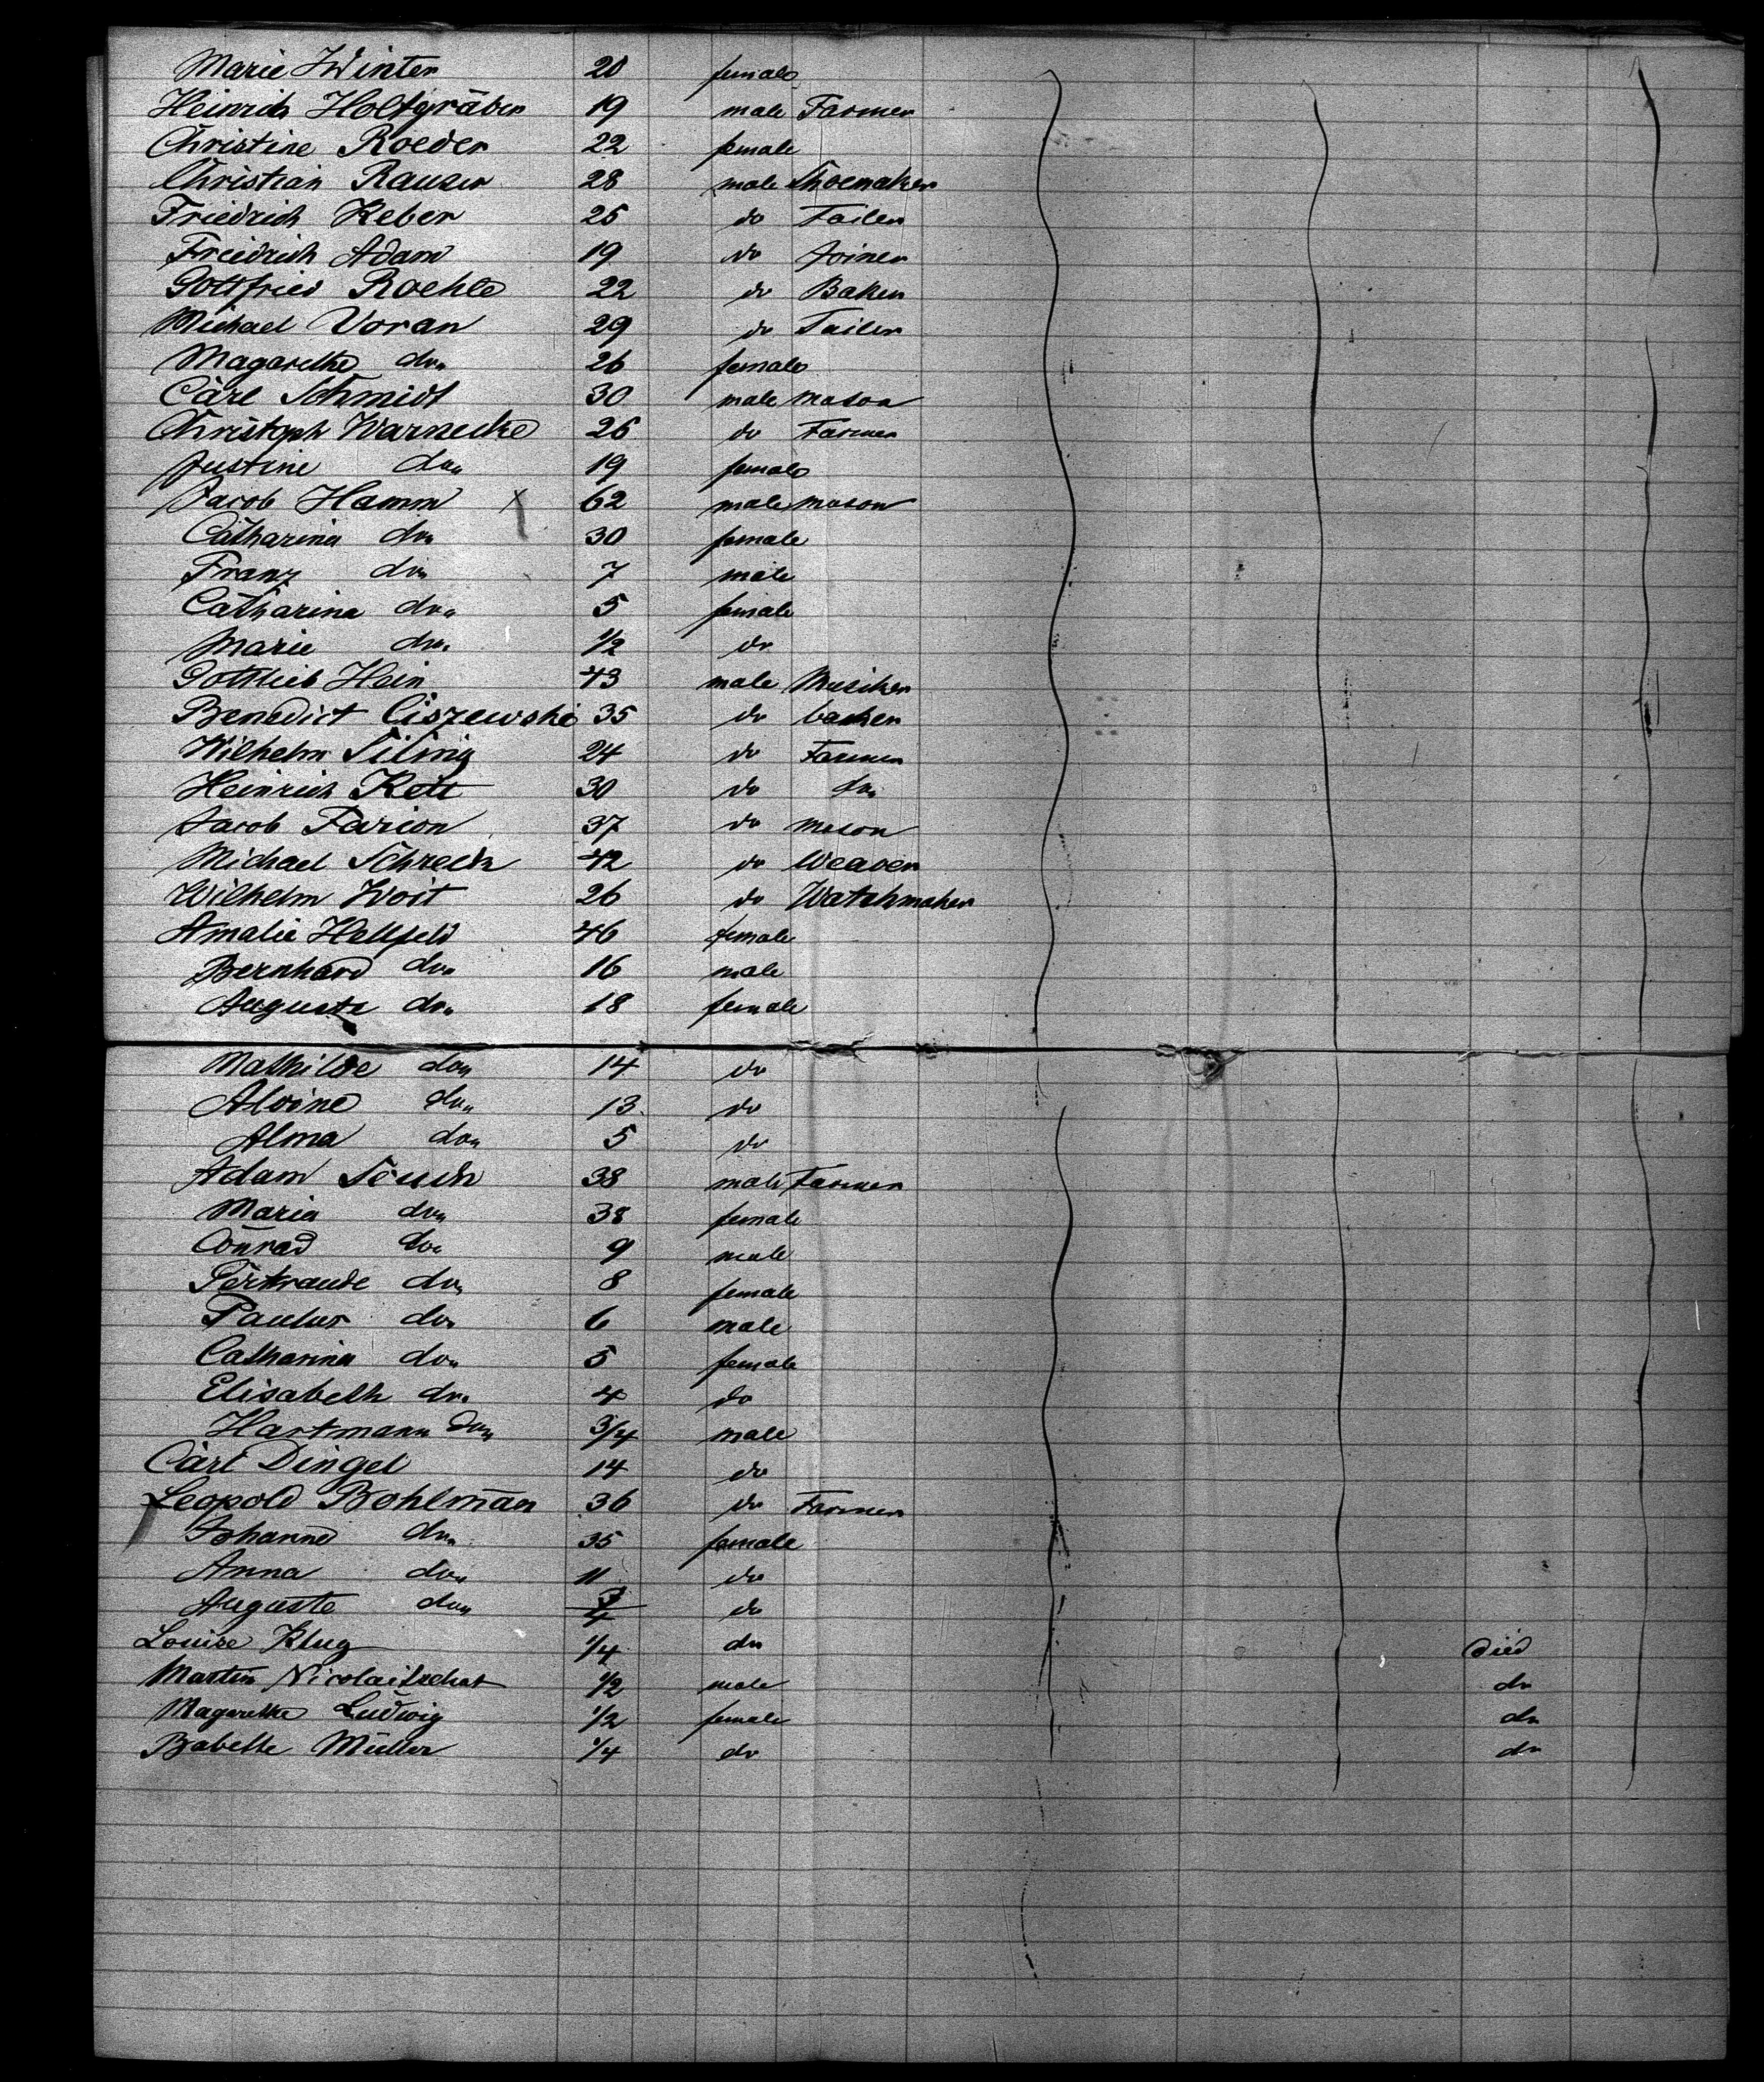 Marie Winter 20 female
Heinrich Holtgräber 19 male Farmer
Christine Roeder 22 female
Christian Rauser 28 male Shoemaker
Friedrich Keber 25 do Tailer
Freidrich Adam 19 do Joiner
Gottfried Roehle 22 do Baker
Michael Voran 29 do Tailer
Magarethe do 26 female
Carl Schmidt 30 male mason
Christoph Warnecke 26 do Farmer
Justine do 19 female
Jacob Hamm X 62 male mason
Catharina do 30 female
Franz do 7 male
Catharina do 5 female
Marie do 1/2 do
Gottlieb Hein 43 male Musiker
Benedict Ciszewski 35 do
Wilhelm 24 do Farmer
Heinrich Kett 30 do do
Jacob Farion 37 do mason
Michael Schreck 42 do Weaver
Wilhelm Woit 26 do Watchmaker
Amalie Hellfeld 46 female
Bernhard do 16 male
Auguste do 18 female
Mathilde do 14 do
Alvine do 13 do
Alma do 5 do
Adam 38 male Farmer
Maria do 38 female
Conrad do 9 male
Gertraude do 8 female
Paulus do 6 male
Catharina do 5 female
Elisabeth do 4 do
Hartmann do 3/4 male
Carl Dingel 14 do
Leopold Bohlman 36 do Farmer
Johanne do 35 female
Anna do 11 do
Auguste do 3/4 do
Louise Klug 1/4 do Died
Martin Nicolaitschat 1/2 male do
Magarethe Ludwig 1/2 female do
Babette Müller 1/4 do do